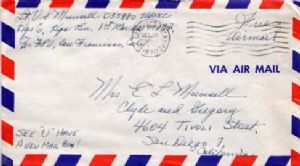 Lt. U S Munsell 035880 USMC
Opso 6, Ops Bn, 1st Mar
℅ FPO, San Francisco, Calif
Free
Airmail
VIA AIR MAIL
Mrs E L Munsell
Clyde and Gregory
4604 Tivoli Street,
San Diego 7,
California
SEE "U" HAVE
A NEW MAIL BOX!